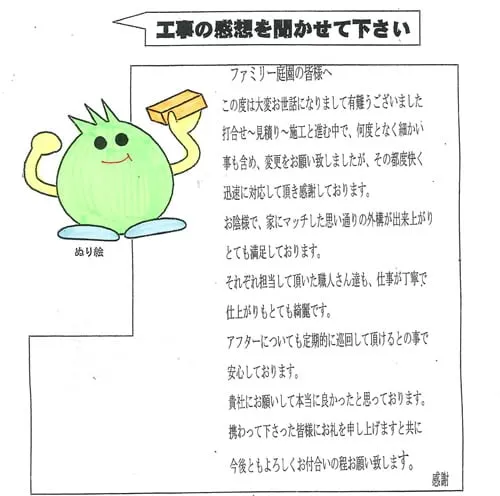 工事の感想を聞かせて下さい
ファミリー庭園の皆様へ
この度は大変お世話になりまして有難うございました
打合せ～見積り～施工と進む中で、何度となく細かい
事も含め、変更をお願い致しましたが、その都度快く
迅速に対応して頂き感謝しております。
お陰様で、家にマッチした思い通りの外構が出来上がり
とても満足しております。
それぞれ担当して頂いた職人さん達も、仕事が丁寧で
仕上がりもとても綺麗です。
アフターについても定期的に巡回して頂けるとの事で
安心しております。
貴社にお願いして本当に良かったと思っております。
携わって下さった皆様にお礼を申し上げますと共に
今後ともよろしくお付合いの程お願い致します。
感謝
ぬり絵